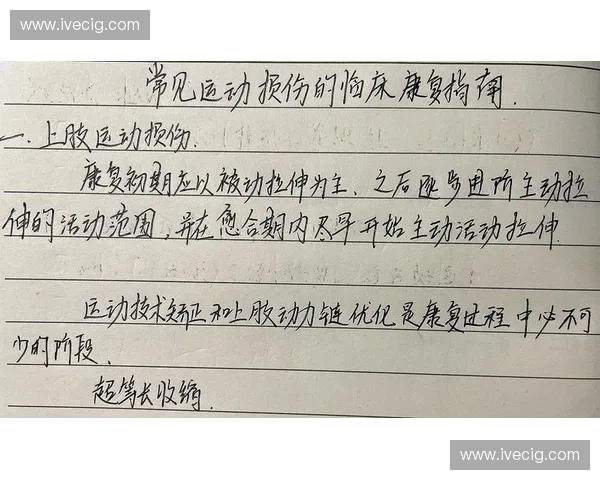 www.ivecig.com
常见运动损伤的临床康复指南.
一. 上肢运动损伤.
康复初期应以被动拉伸为主，之后逐步进阶主动拉
伸的活动范围，并在愈合期内尽早开始主动活动拉伸.
运动技术矫正和上肢动力链优化是康复过程中必不可
少的阶段.
超等长收缩.
www.ivecig.com